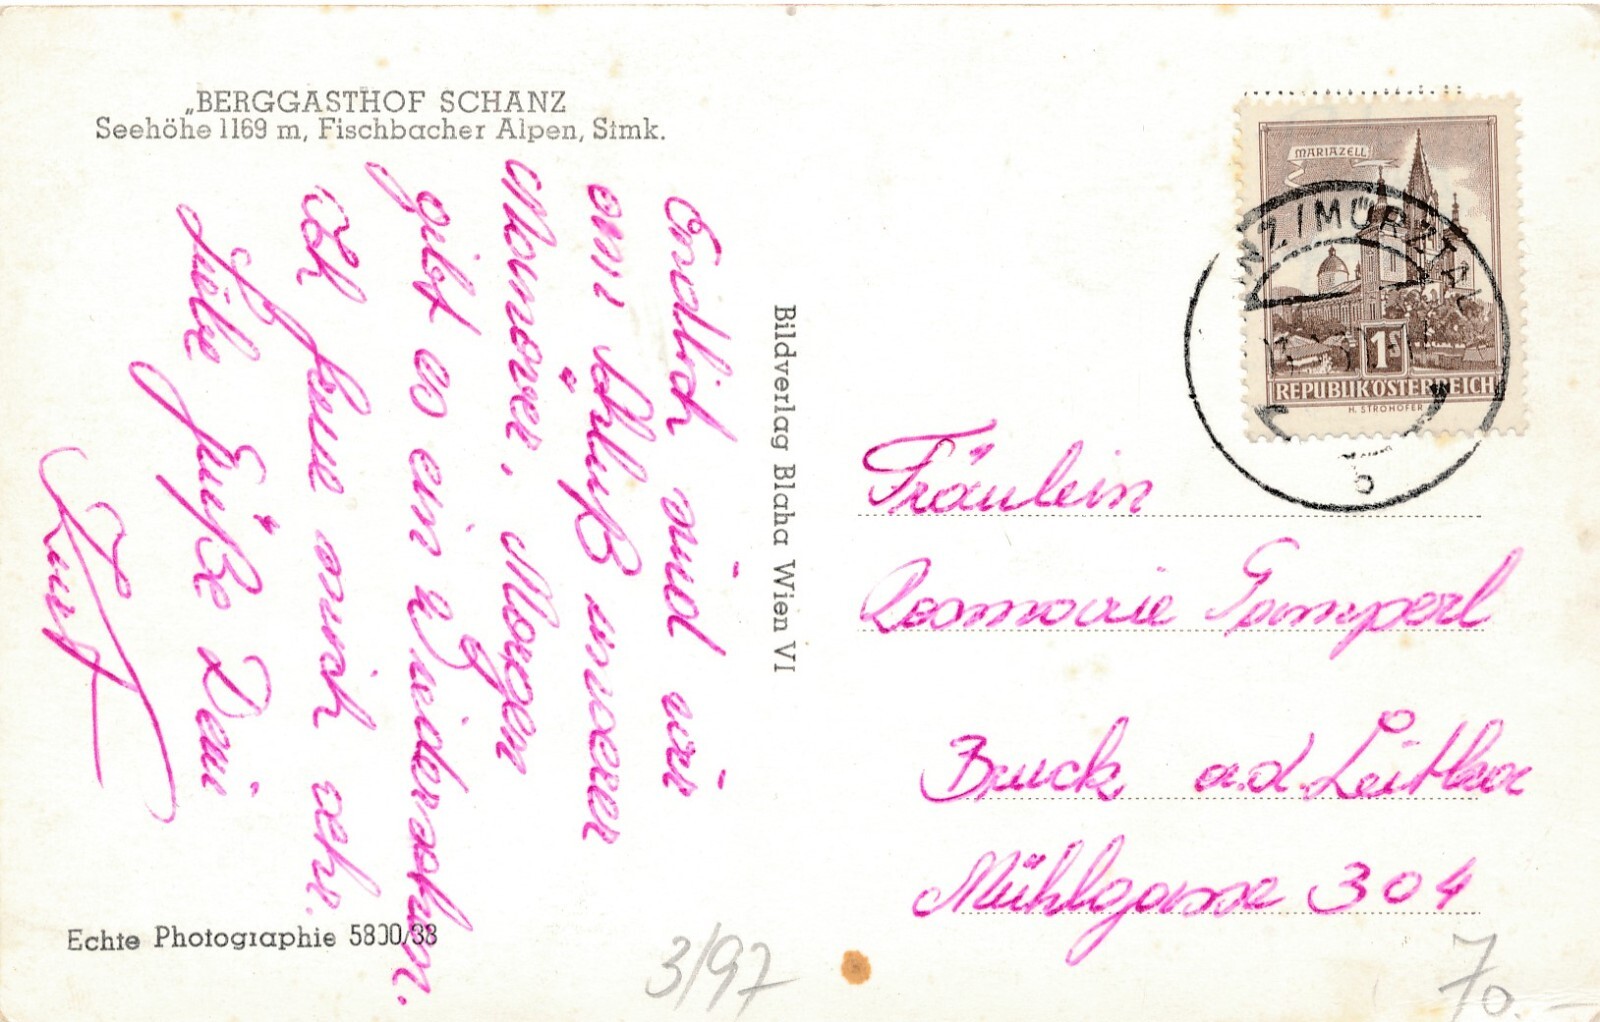 „BERGGASTHOF SCHANZ
Seehöhe 1169 m, Fischbacher Alpen, Stmk.
Endlich sind wir
am Schluß unserer
Manöver. Morgen
gibt es ein Wiedersehen.
Ich freue mich sehr.
Liebe Grüße Dein
Kurt
Echte Photographie 5800/38
Bildverlag Blaha Wien VI
MARIAZELL
NZ/MÜRZTAL
b
1S
REPUBLIK ÖSTERREICH
H. STROHOFER
Fräulein
Rosmarie Gamperl
Bruck a.d. Leitha
Mühlgasse 304
3/97
70.-